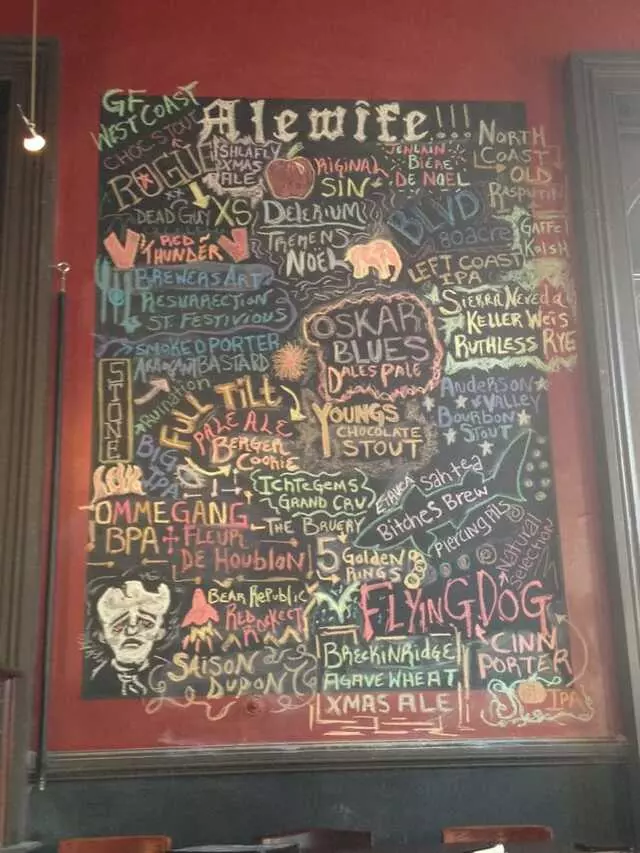 GF
WEST COAST
Alewife!!!
CHOC STOUT
ROGUE
XX
DEAD GUY
XS
SHLAFLY
XMAS
ALE
ORIGINAL
SIN
JENLAIN
BIÈRE
DE NOEL
NORTH
COAST
OLD
RASPUTIN
RED
THUNDER
DELERIUM
TREMENS
NOEL
BLVD
80ACRE
LEFT COAST
IPA
GAFFEL
KOLSH
BREWERS ART
RESURRECTION
ST. FESTIVIOUS
OSKAR
BLUES
DALES PALE
SIERRA NEVEDA
KELLER WEIS
RUTHLESS RYE
SMOKED PORTER
ARROGANT BASTARD
STONE
RUINATION
FULL TILT
PALE ALE
BERGER
COOKIE
BIG
IPA
YOUNGS
CHOCOLATE
STOUT
Anderson
VALLEY
BOURBON
STOUT
ICHTEGEMS
GRAND CRU
Sahtea
Bitches Brew
Piercing Pils
Natural
Selection
OMMEGANG
BPA
FLEUR
DE HOUBLON
THE BRUERY
5 GOLDEN
RINGS
BEAR REPUBLIC
RED ROCKECT
FLYING DOG
SAISON
DUPON
BRECKINRIDGE
AGAVE WHEAT
XMAS ALE
CINN
PORTER
IPA